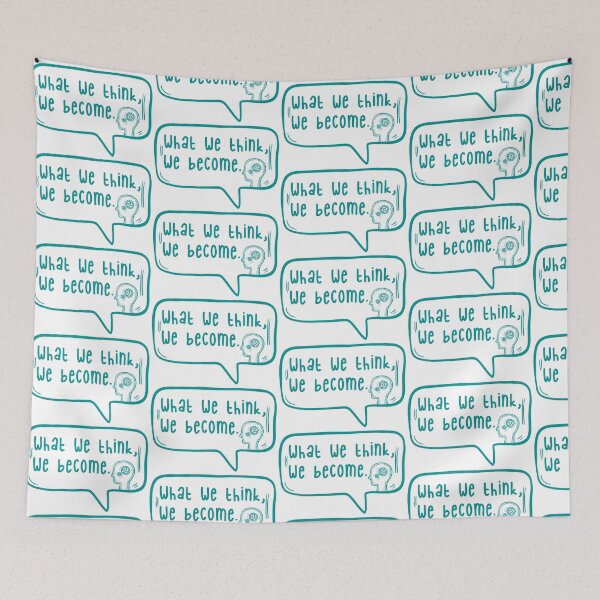 What We think,
We become.
What We think,
We become.
What We think,
We become.
What We think,
We become.
What We think,
We become.
We become.
What We think,
We become.
What We think,
We become.
What We think,
We become.
What We think,
We become.
What We think,
We become.
What We think,
We become.
What We think,
We become.
What We think,
We become.
What We think,
We become.
What We think,
We become.
We become.
What We think,
We become.
What We think,
We become.
What We think,
We become.
What We think,
We become.
What We think,
We become.
What
We
What
We
What
We
What
We
What
We